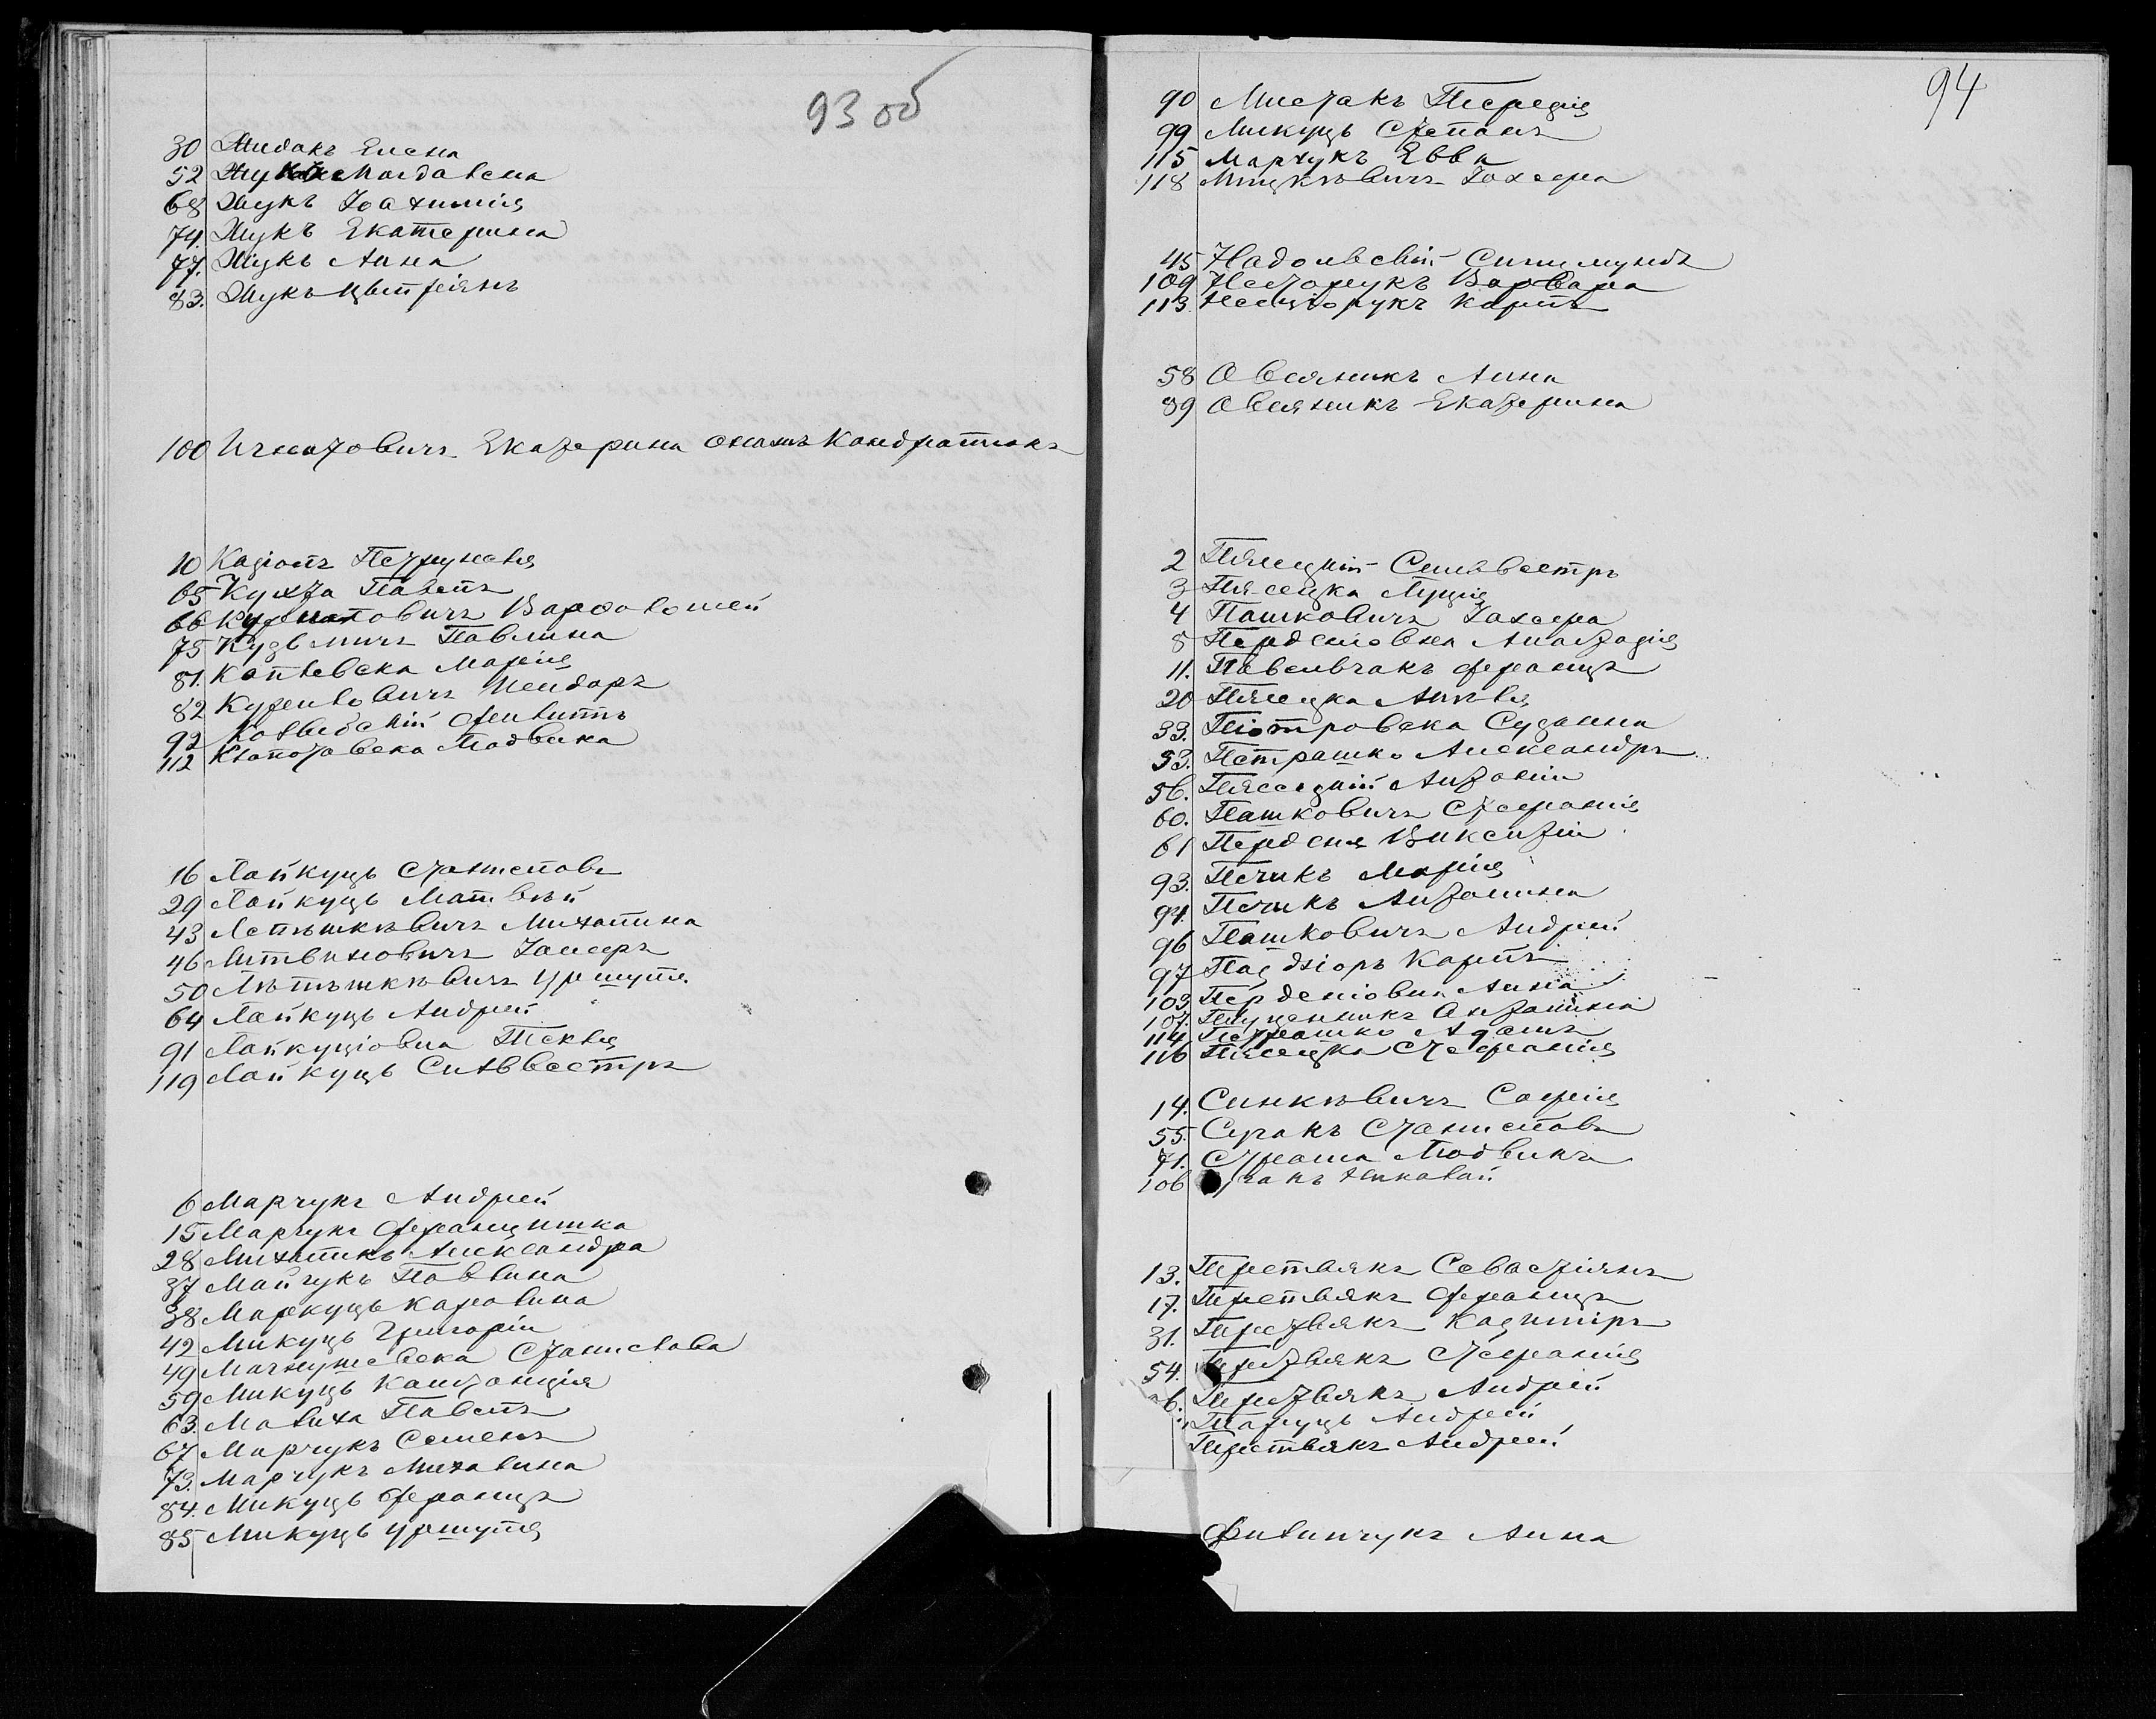 93 об
30 Жидакъ Елена
52 Жукъ Магдалена
68 Жукъ Іоахимія
74. Жукъ Екатерина
77. Жукъ Анна
83. Жукъ Цыпріянъ
100 Игнатовичъ Екатерина онажъ Кондратюкъ
10 Казіонъ Петрунеля
65 Кухта Павелъ
66 Вардоломей
75 Кузьмичъ Павлина
81. Марія
82 Курентовичъ
92
112 Людвика
16 Лайкуць Станиславъ
29 Лайкуць Матвѣй
43 Лепѣшкѣвичъ Михалина
46 Литвиновичъ
50 Лѣпѣшкѣвичъ Уршуля
64 Лайкуць Андрей
91 Лайкуціовна Текля
119 Лайкуць Сильвестръ
6 Марчукъ Андрей
15 Марчукъ Францишка
28 Михаликъ Александра
37 Майчукъ Павлина
38 Маркуць Каролина
42 Микуць Григорій
49 Станислава
59 Микуць Констанція
63. Малиха Павелъ
67 Марчукъ Семенъ
73. Марчукъ Михалина
84. Микуць Францъ
85 Микуць Уршуля
94
90 Мистакъ Тередія
99 Микуць Степанъ
115 Марчукъ Евва
118 Мицкѣвичъ Іозефа
45 Надольскій Сигизмундъ
109 Несторукъ Варвара
113. Несціорукъ Карпъ
58 Овсяникъ Анна
89 Овсяникъ Екатерина
2 Пясецкій Сильвестръ
3 Пясецка Луція
4 Пашковичъ Іозефа
8 Перденіовна Анастазія
11. Павельчакъ Францъ
20 Пясецка Анѣля
33. Піотровска Сузанна
53. Петрашко Александръ
56. Пясецкій Антоній
60. Пашковичъ Стефанія
61 Перденя Викентій
93. Печикъ Марія
94. Печикъ Антонина
96 Пашковичъ Андрей
97 Паздзіоръ Карпъ
103 Перденіовна Анна
107. Антонина
114 Петрашко Адамъ
116 Пясецка Стефанія
14. Синкѣвичъ Софія
55. Сучакъ Станиславъ
71. Страша Людвикъ
106 Николай
13. Третьякъ Севастіянъ
17. Третьякъ Францъ
31. Третьякъ Казиміръ
54. Третьякъ Стефанія
6. Третьякъ Андрей
Таруць Андрей
Третьякъ Андрей
Филипчукъ Анна